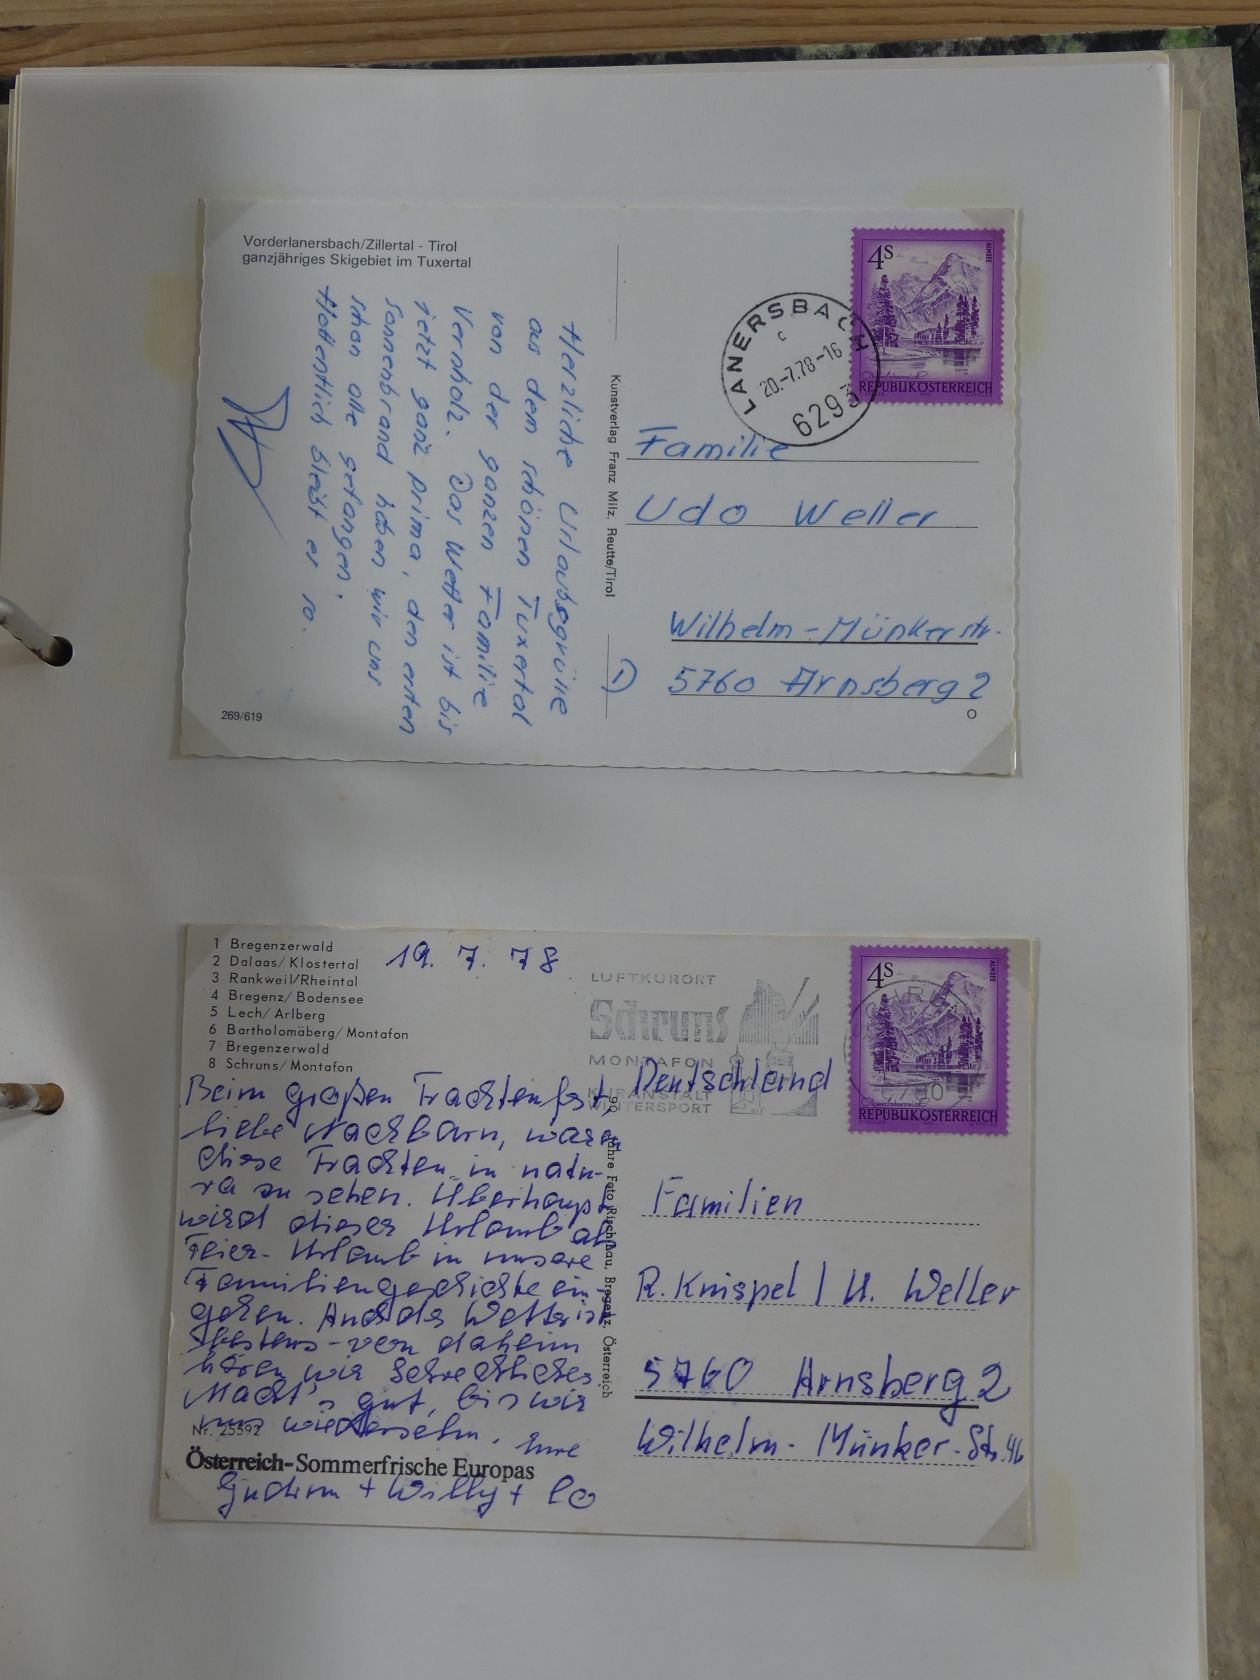 Vorderlanersbach/Zillertal - Tirol
ganzjähriges Skigebiet im Tuxertal
Herzliche Urlaubsgrüße
aus dem schönen Tuxertal
von der ganzen Familie
Vernholz. Das Wetter ist bis
jetzt ganz prima, den ersten
Sonnenbrand haben wir uns
schon alle gefangen.
Hoffentlich bleibt es so.
269/619
Kunstverlag Franz Milz, Reutte/Tirol
4S
ALMSEE
REPUBLIK ÖSTERREICH
LANERSBACH
c
20.-7.78-16
6293
Familie
Udo Weller
Wilhelm-Münkerstr.
1) 5760 Arnsberg 2
1 Bregenzerwald
2 Dalaas/Klostertal
3 Rankweil/Rheintal
4 Bregenz/Bodensee
5 Lech/Arlberg
6 Bartholomäberg/Montafon
7 Bregenzerwald
8 Schruns/Montafon
19. 7. 78
Beim großen Trachtenfest,
liebe Nachbarn, waren
diese Trachten in natu-
ra zu sehen. Überhaupt
wird dieser Urlaub als
Feier-Urlaub in unsere
Familiengeschichte ein-
gehen. Auch das Wetter ist
bestens - von daheim
hören wir Schreckliches
Macht's gut, bis wir
uns wiedersehn. Eure
Nr. 25592
Österreich-Sommerfrische Europas
Gudrun + Willy +
90 Jahre Foto Risch-Lau, Bregenz, Österreich
LUFTKURORT
Schruns
MONTAFON
KURANSTALT
WINTERSPORT
4S
ALMSEE
REPUBLIK ÖSTERREICH
Deutschland
Familien
R. Knispel / U. Weller
5760 Arnsberg 2
Wilhelm-Münker-Str. 46